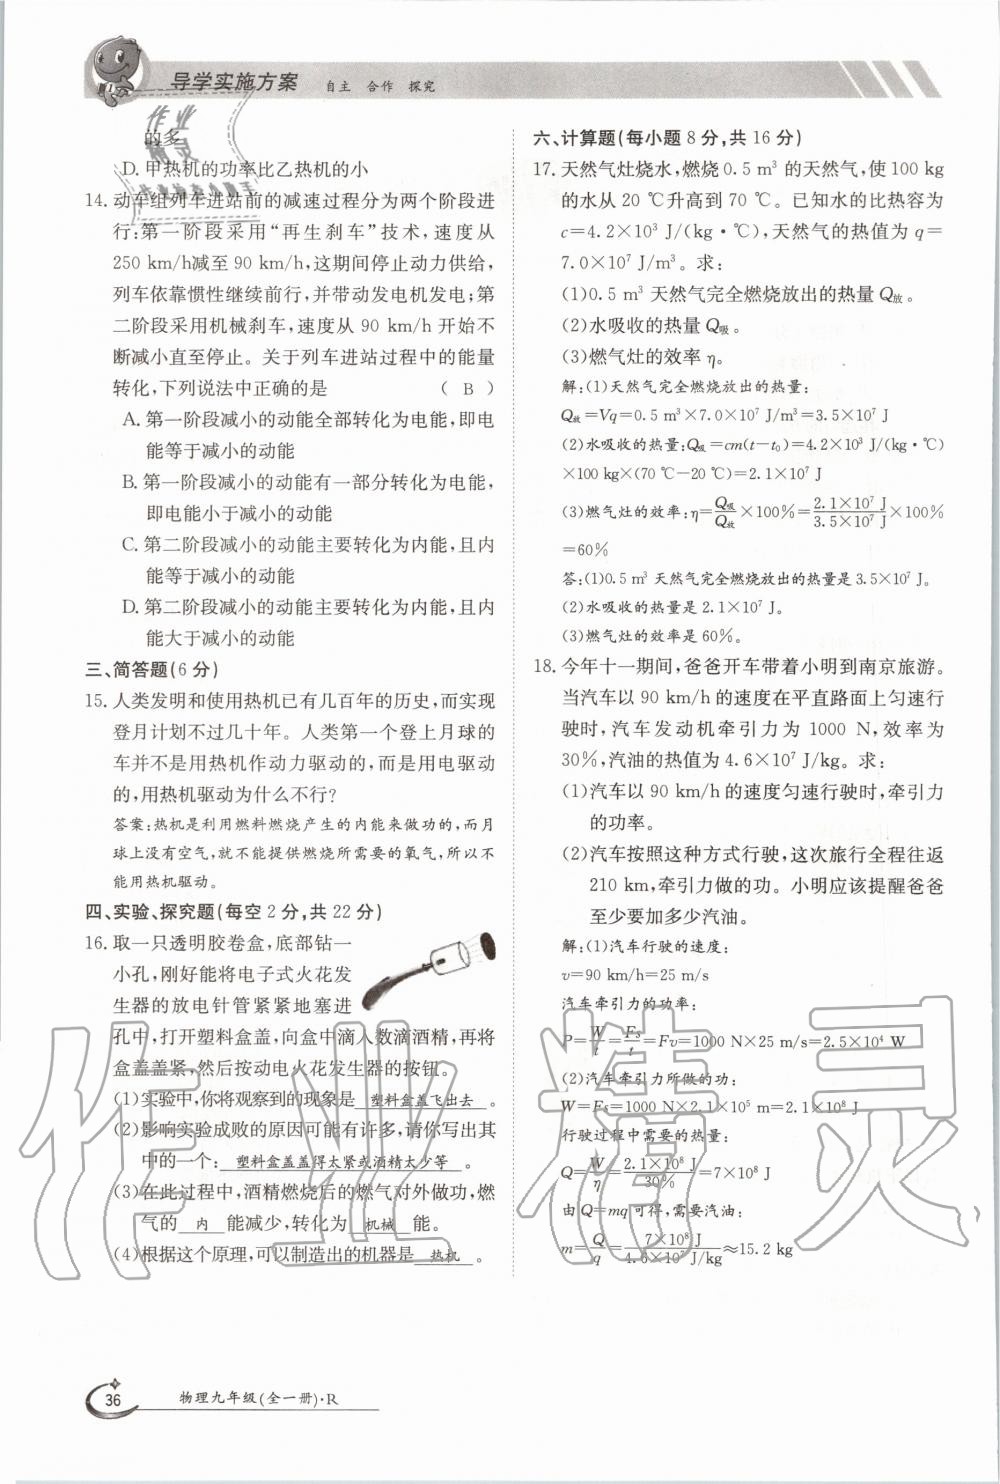 导学实施方案 自主 合作 探究
的多
D. 甲热机的功率比乙热机的小
14. 动车组列车进站前的减速过程分为两个阶段进
行:第一阶段采用“再生刹车”技术,速度从
250 km/h减至 90 km/h,这期间停止动力供给,
列车依靠惯性继续前行,并带动发电机发电;第
二阶段采用机械刹车,速度从 90 km/h 开始不
断减小直至停止。关于列车进站过程中的能量
转化,下列说法中正确的是 ( B )
A. 第一阶段减小的动能全部转化为电能,即电
能等于减小的动能
B. 第一阶段减小的动能有一部分转化为电能,
即电能小于减小的动能
C. 第二阶段减小的动能主要转化为内能,且内
能等于减小的动能
D. 第二阶段减小的动能主要转化为内能,且内
能大于减小的动能
三、简答题(6 分)
15. 人类发明和使用热机已有几百年的历史,而实现
登月计划不过几十年。人类第一个登上月球的
车并不是用热机作动力驱动的,而是用电驱动
的,用热机驱动为什么不行?
答案:热机是利用燃料燃烧产生的内能来做功的,而月
球上没有空气,就不能提供燃烧所需要的氧气,所以不
能用热机驱动。
四、实验、探究题(每空 2 分,共 22 分)
16. 取一只透明胶卷盒,底部钻一
小孔,刚好能将电子式火花发
生器的放电针管紧紧地塞进
孔中,打开塑料盒盖,向盒中滴入数滴酒精,再将
盒盖盖紧,然后按动电火花发生器的按钮。
(1)实验中,你将观察到的现象是 塑料盒盖飞出去 。
(2)影响实验成败的原因可能有许多,请你写出其
中的一个: 塑料盒盖盖得太紧或酒精太少等 。
(3)在此过程中,酒精燃烧后的燃气对外做功,燃
气的 内 能减少,转化为 机械 能。
(4)根据这个原理,可以制造出的机器是 热机 。
六、计算题(每小题 8 分,共 16 分)
17. 天然气灶烧水,燃烧 0.5 m³ 的天然气,使 100 kg
的水从 20 ℃升高到 70 ℃。已知水的比热容为
c=4.2×10³ J/(kg·℃),天然气的热值为 q=
7.0×10⁷ J/m³。求:
(1)0.5 m³ 天然气完全燃烧放出的热量 Q放。
(2)水吸收的热量 Q吸。
(3)燃气灶的效率 η。
解:(1)天然气完全燃烧放出的热量:
Q放=Vq=0.5 m³×7.0×10⁷ J/m³=3.5×10⁷ J
(2)水吸收的热量:Q吸=cm(t-t₀)=4.2×10³ J/(kg·℃)
×100 kg×(70 ℃-20 ℃)=2.1×10⁷ J
(3)燃气灶的效率:η=Q吸/Q放×100%=2.1×10⁷ J/3.5×10⁷ J×100%
=60%
答:(1)0.5 m³ 天然气完全燃烧放出的热量是 3.5×10⁷ J。
(2)水吸收的热量是 2.1×10⁷ J。
(3)燃气灶的效率是 60%。
18. 今年十一期间,爸爸开车带着小明到南京旅游。
当汽车以 90 km/h 的速度在平直路面上匀速行
驶时,汽车发动机牵引力为 1000 N,效率为
30%,汽油的热值为 4.6×10⁷ J/kg。求:
(1)汽车以 90 km/h 的速度匀速行驶时,牵引力
的功率。
(2)汽车按照这种方式行驶,这次旅行全程往返
210 km,牵引力做的功。小明应该提醒爸爸
至少要加多少汽油。
解:(1)汽车行驶的速度:
v=90 km/h=25 m/s
汽车牵引力的功率:
P=W/t=Fs/t=Fv=1000 N×25 m/s=2.5×10⁴ W
(2)汽车牵引力所做的功:
W=Fs=1000 N×2.1×10⁵ m=2.1×10⁸ J
行驶过程中需要的热量:
Q=W/η=2.1×10⁸ J/30%=7×10⁸ J
由 Q=mq 可得,需要汽油:
m=Q/q=7×10⁸ J/4.6×10⁷ J/kg≈15.2 kg
36 物理九年级(全一册)·R
作业精灵